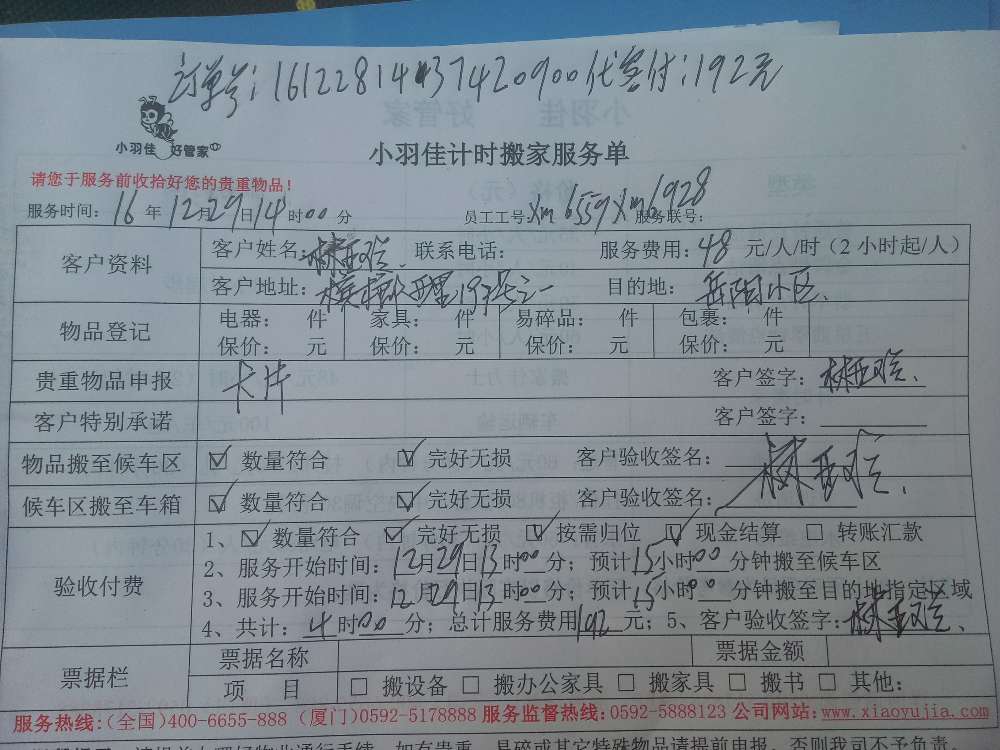 订单号:16122814437420900代客付:192元
小羽佳 好管家
小羽佳计时搬家服务单
请您于服务前收拾好您的贵重物品!
服务时间:16年12月29日14时00分 员工工号:Xm6559 Xm6928 服务联号:
客户资料 客户姓名: 联系电话: 服务费用:48元/人/时(2小时起/人)
客户地址: 目的地:岳阳小区
物品登记 电器: 件 家具: 件 易碎品: 件 包裹: 件
保价: 元 保价: 元 保价: 元 保价: 元
贵重物品申报 卡片 客户签字:
客户特别承诺 客户签字:
物品搬至候车区 ☑ 数量符合 ☑ 完好无损 客户验收签名:
候车区搬至车箱 ☑ 数量符合 ☑ 完好无损 客户验收签名:
验收付费 1、☑ 数量符合 ☑ 完好无损 ☑ 按需归位 ☑ 现金结算 □ 转账汇款
2、服务开始时间:12月29日13时00分;预计15小时00分钟搬至候车区
3、服务开始时间:12月29日13时00分;预计15小时00分钟搬至目的地指定区域
4、共计:4时00分;总计服务费用192元;5、客户验收签字:
票据栏 票据名称 票据金额
项 目 □ 搬设备 □ 搬办公家具 □ 搬家具 □ 搬书 □ 其他:
服务热线:(全国)400-6655-888 (厦门)0592-5178888 服务监督热线:0592-5888123 公司网站:www.xiaoyujia.com